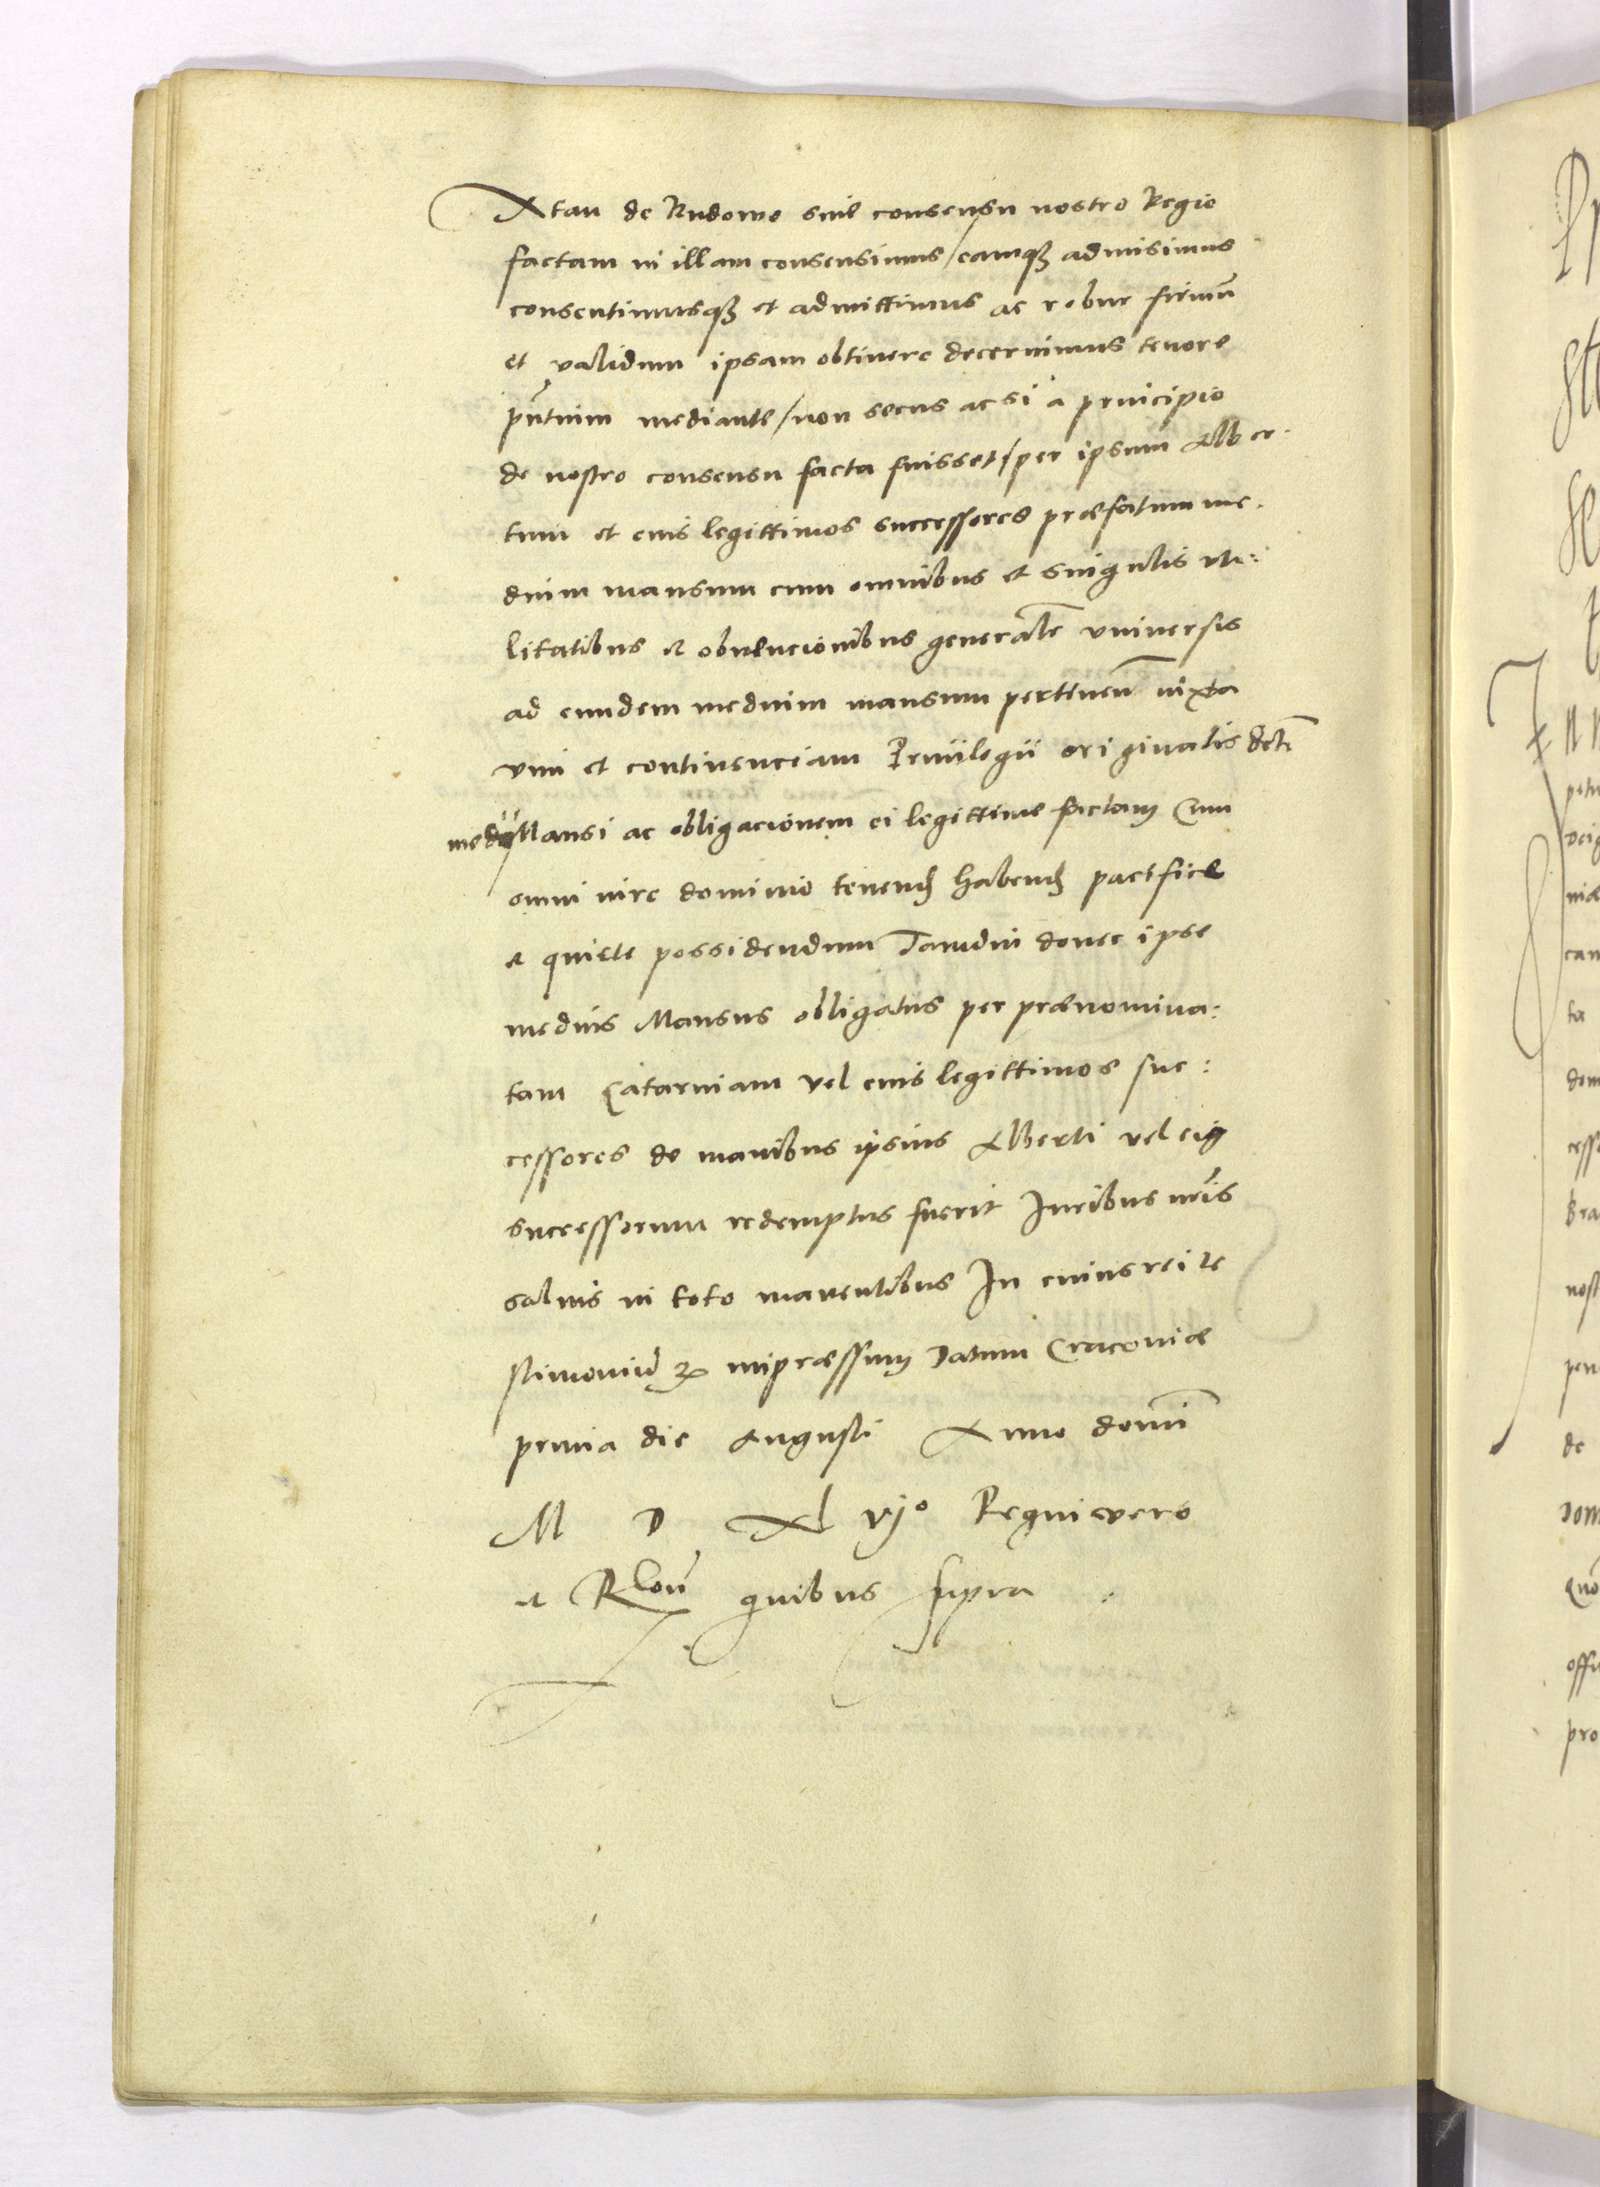 Xtan de Rudowo sine consensu nostro Regio
factam in illam consensimus / eamqȝ admisimus
consentimusqȝ et admittimus ac robur firmũ
et validum ipsam obtinere decernimus tenore
pñtium mediante / non secus ac si a principio
de nostro consensu facta fuisset / per ipsum Alber.
tum et eius legittimos successores præfatum me.
dium mansum cum omnibus et singulis uti:
litatibus et obvencionibus generaliter universis
ad eundem medium mansum pertineñ iuxta
vim et continenciam Privilegii originalis dicti
medii Mansi ac obligacionem ei legittime factam Cum
omni iure dominio tenendȝ habendȝ pacifice
et quiete possidendum Tamdiu donec ipse
medius Mansus obligatus per prænomina:
tam Catarinam vel eius legittimos suc:
cessores de manibus ipsius Alberti vel eius
successorum redemptus fuerit Iuribus nr̃is
salvis in toto manentibus In cuius rei te
stimoniũ impræssum Datum Cracoviæ
prima die Augusti Anno domi
M D Xl vjo Regni vero
et quibus supra